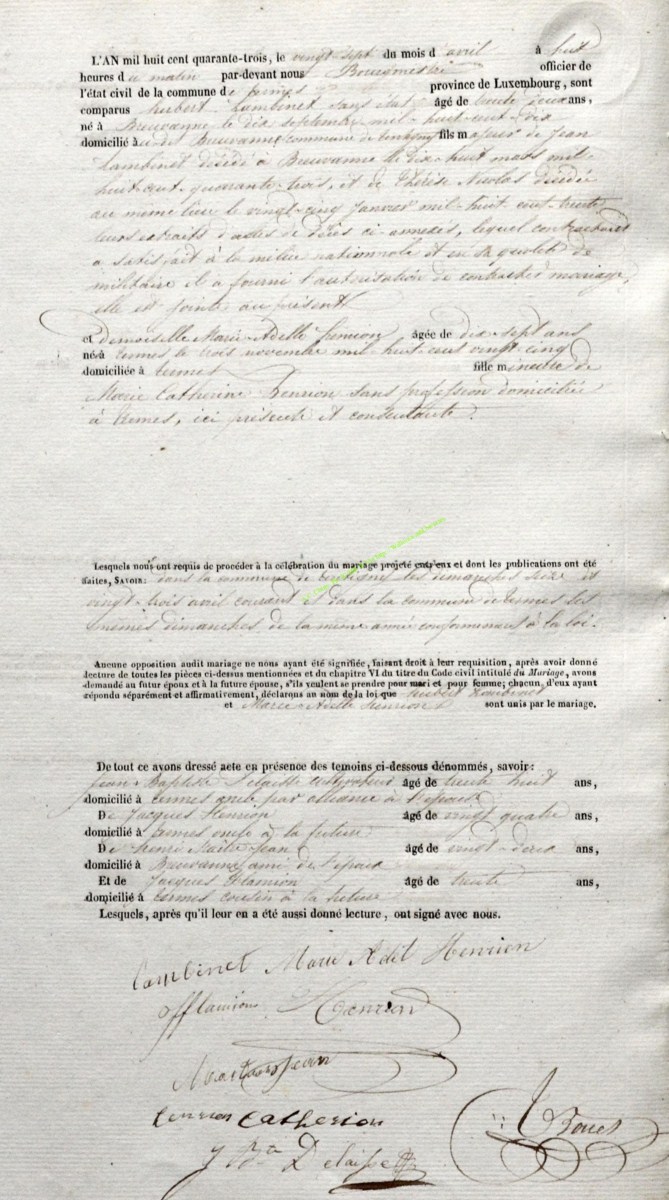 L'AN mil huit cent quarante-trois, le vingt-sept du mois d avril à huit
heures du matin par-devant nous Bourgmestre officier de
l'état civil de la commune de province de Luxembourg, sont
comparus hubert Lambinet sans état âgé de trente deux ans,
né à Breuvanne le dix septembre mil-huit-cent-dix
domicilié à Breuvanne commune de fils majeur de Jean
Lambinet décédé à Breuvanne le dix-huit mars mil-
huit-cent-quarante-trois, et de Thérèse Nicolas décédée
au même lieu le vingt-cinq Janvier mil-huit-cent-trente
leurs extraits d'actes de décès ci-annexés, lequel contractant
a satisfait à la milice nationale et en sa qualité de
militaire il a fourni l'autorisation de contracter mariage,
elle est jointe au présent
et demoiselle Marie-Adelle henrion âgée de dix-sept ans
née à termes le trois novembre mil-huit-cent vingt-cinq
domiciliée à termes fille mineure de
Marie Catherine henrion sans profession domiciliée
à termes, ici présente et consentante.
Lesquels nous ont requis de procéder à la célébration du mariage projeté entr'eux et dont les publications ont été
faites, SAVOIR: dans la commune de les dimanches seize et
vingt-trois avril courant et dans la commune de termes les
mêmes dimanches de la même année conformément à la loi.
Aucune opposition audit mariage ne nous ayant été signifiée, faisant droit à leur requisition, après avoir donné
lecture de toutes les pièces ci-dessus mentionnées et du chapitre VI du titre du Code civil intitulé du Mariage, avons
demandé au futur époux et à la future épouse, s'ils veulent se prendre pour mari et pour femme; chacun d'eux ayant
répondu séparément et affirmativement, déclarons au nom de la loi que hubert Lambinet
et Marie-Adelle henrion sont unis par le mariage.
De tout ce avons dressé acte en présence des temoins ci-dessous dénommés, savoir:
Jean-Baptiste Delaisse cultivateur âgé de trente huit ans,
domicilié à termes oncle par alliance à l'épouse
De Jacques henrion âgé de vingt quatre ans,
domicilié à termes oncle à la future
De henri âgé de vingt-deux ans,
domicilié à Breuvanne ami de l'époux
Et de Jacques âgé de trente ans,
domicilié à termes cousin à la future
Lesquels, après qu'il leur en a été aussi donné lecture, ont signé avec nous.
Lambinet Marie Adel Henrion
Henrion
Catherion
J Bte Delaisse